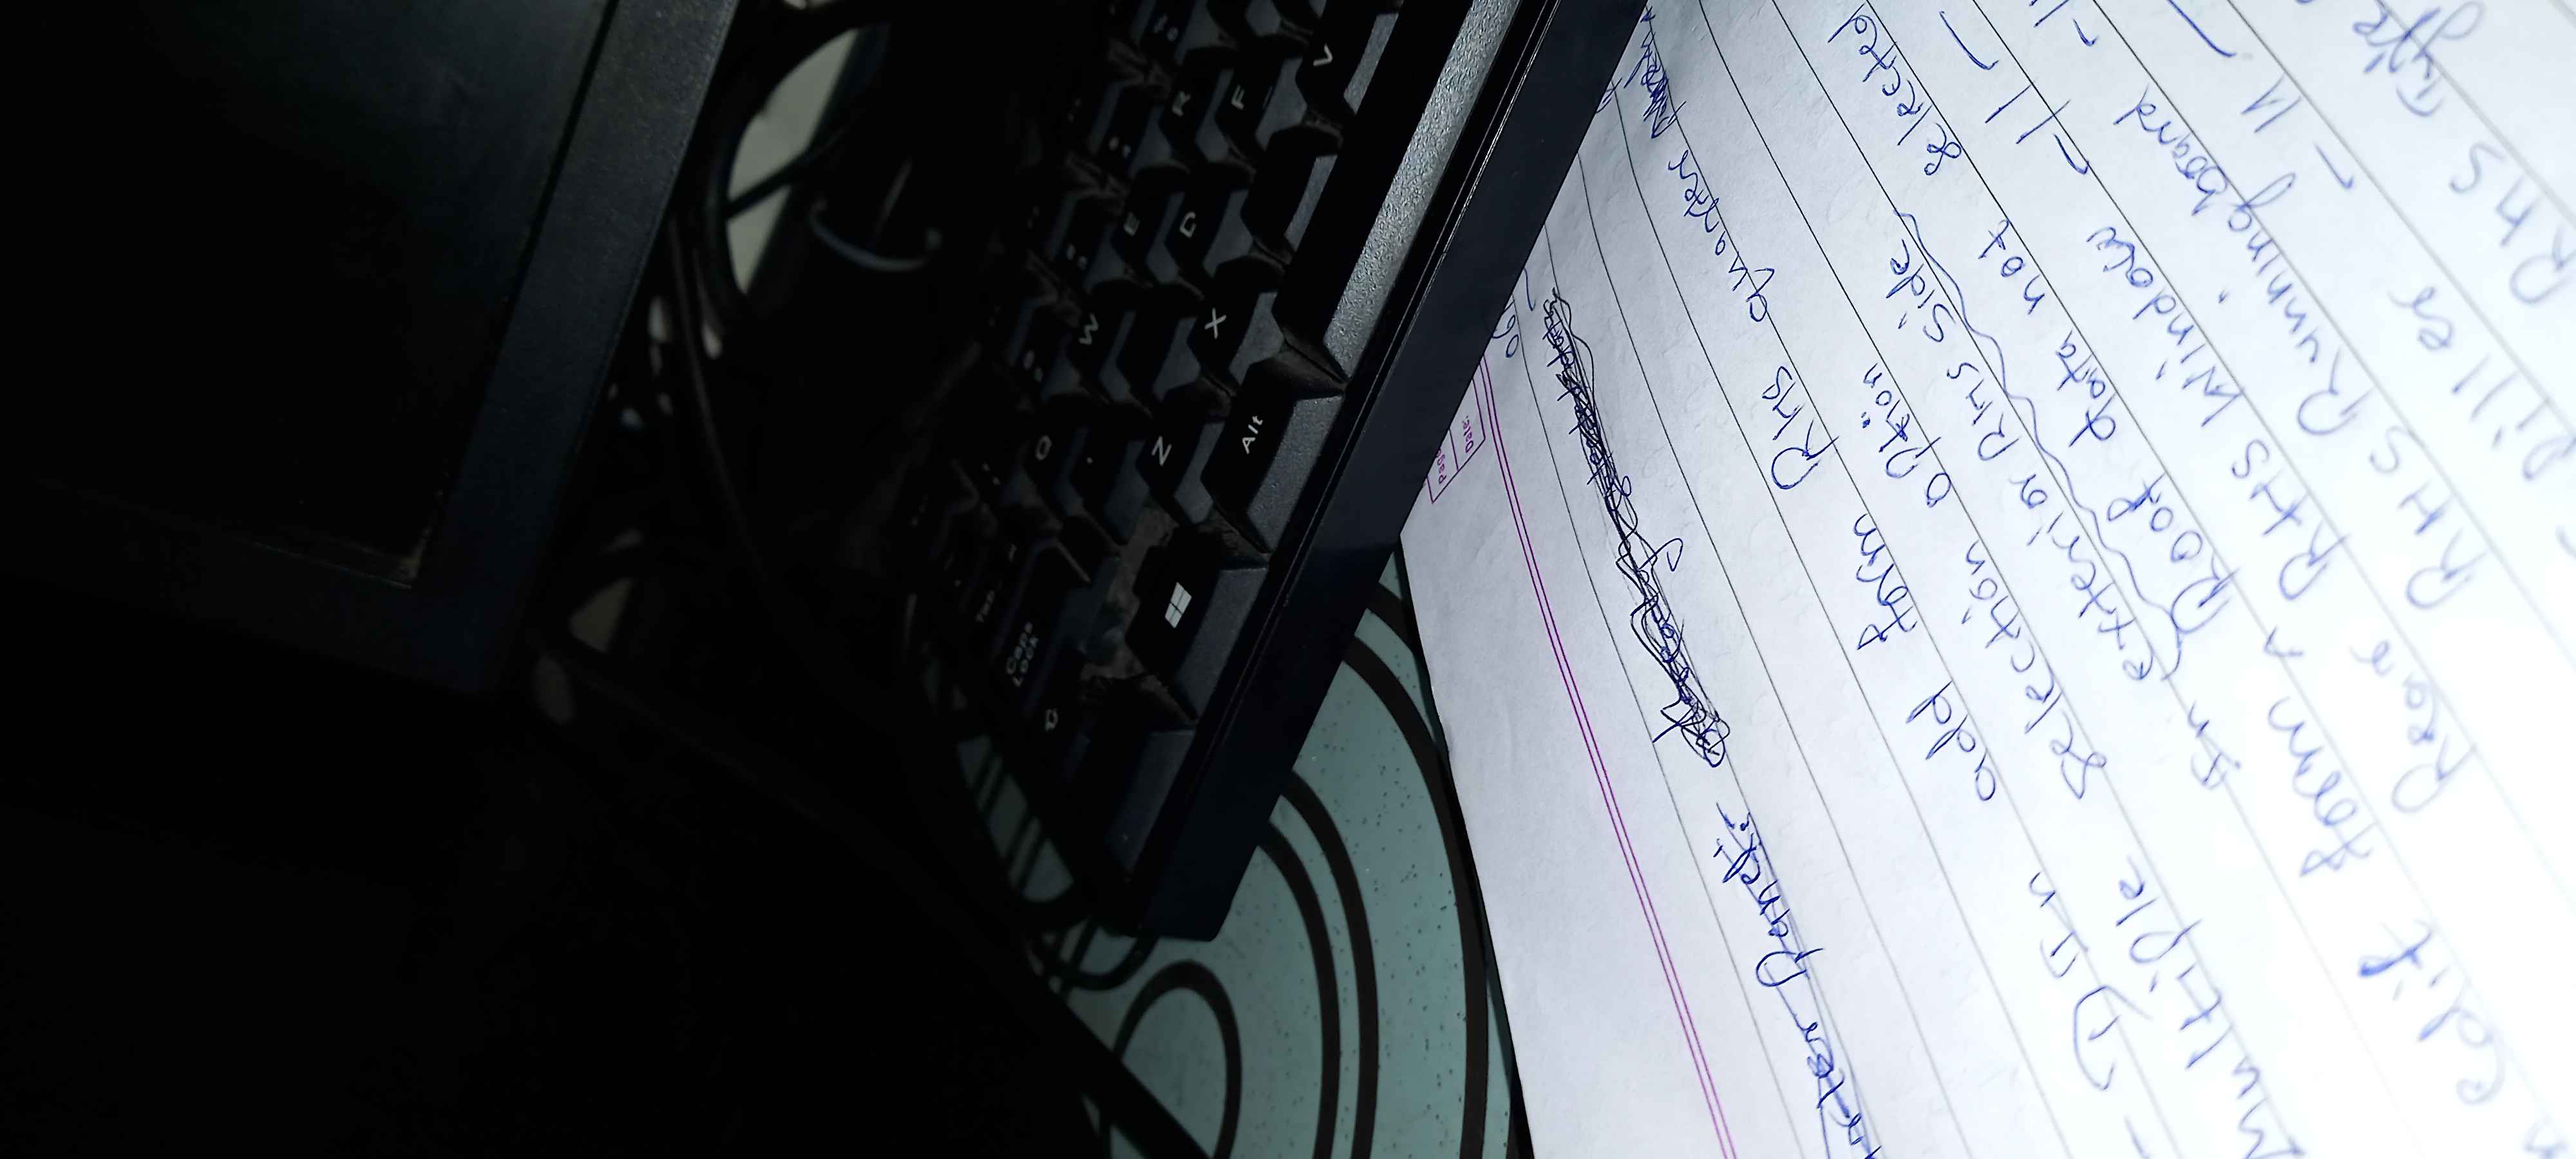 Tab
Caps
Lock
Q
W
E
R
Z
X
D
F
Alt
V
Page
Date:
06
Panel:
① In add form RHS quarter
Multiple selection option
In exterior RHS side
edit form ^ Roof data not selected
Rear RHS Window -11-
RHS Running board -11
Piller -11-
RHS Type